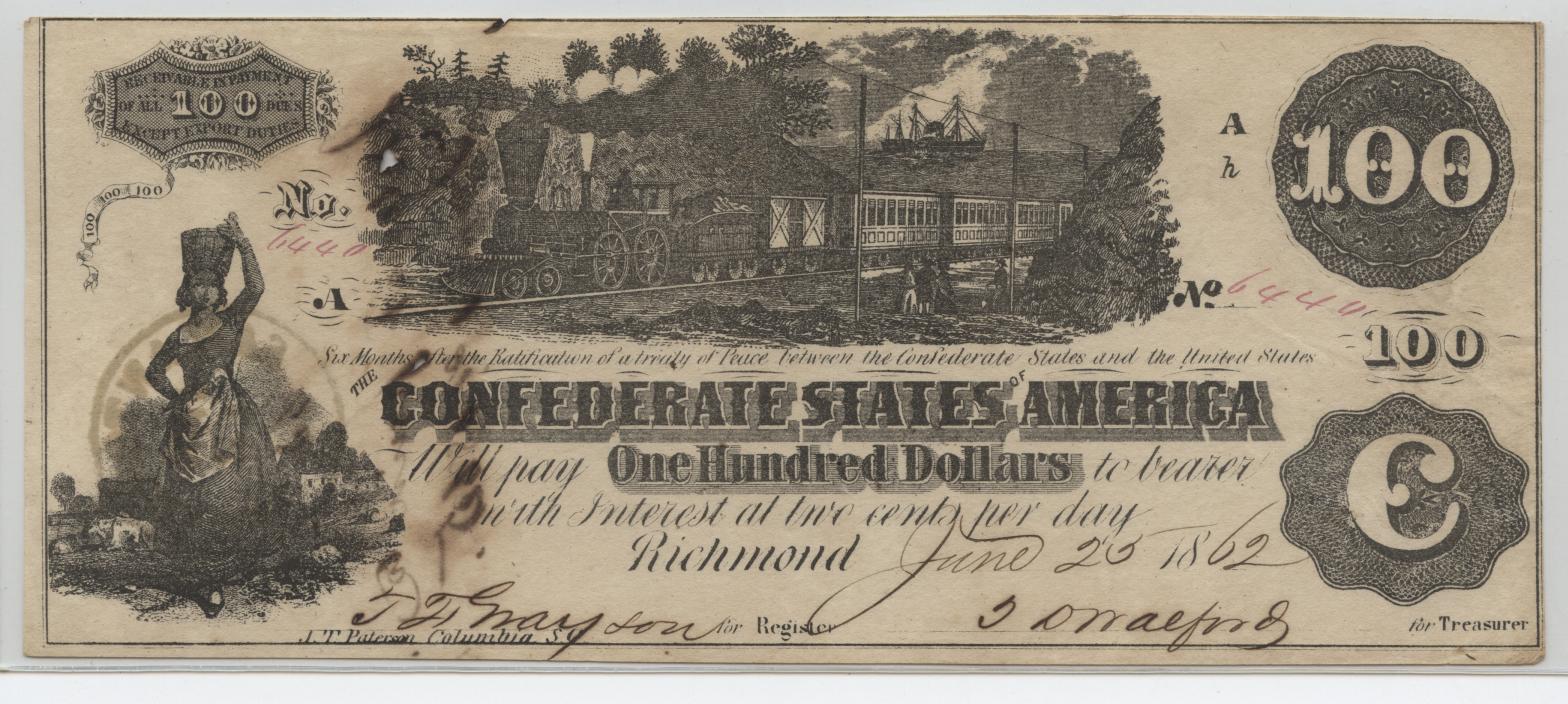 RECEIVABLE IN PAYMENT
OF ALL 100 DUES
EXCEPT EXPORT DUTIES
100 100 100
No.
6440
A
A
h
100
No 6440
100
Six Months after the Ratification of a treaty of Peace between the Confederate States and the United States
THE
CONFEDERATE STATES OF AMERICA
Will pay One Hundred Dollars to bearer
with Interest at two cents per day
Richmond June 25 1862
C
for Register
for Treasurer
J.T. Paterson Columbia, S.C